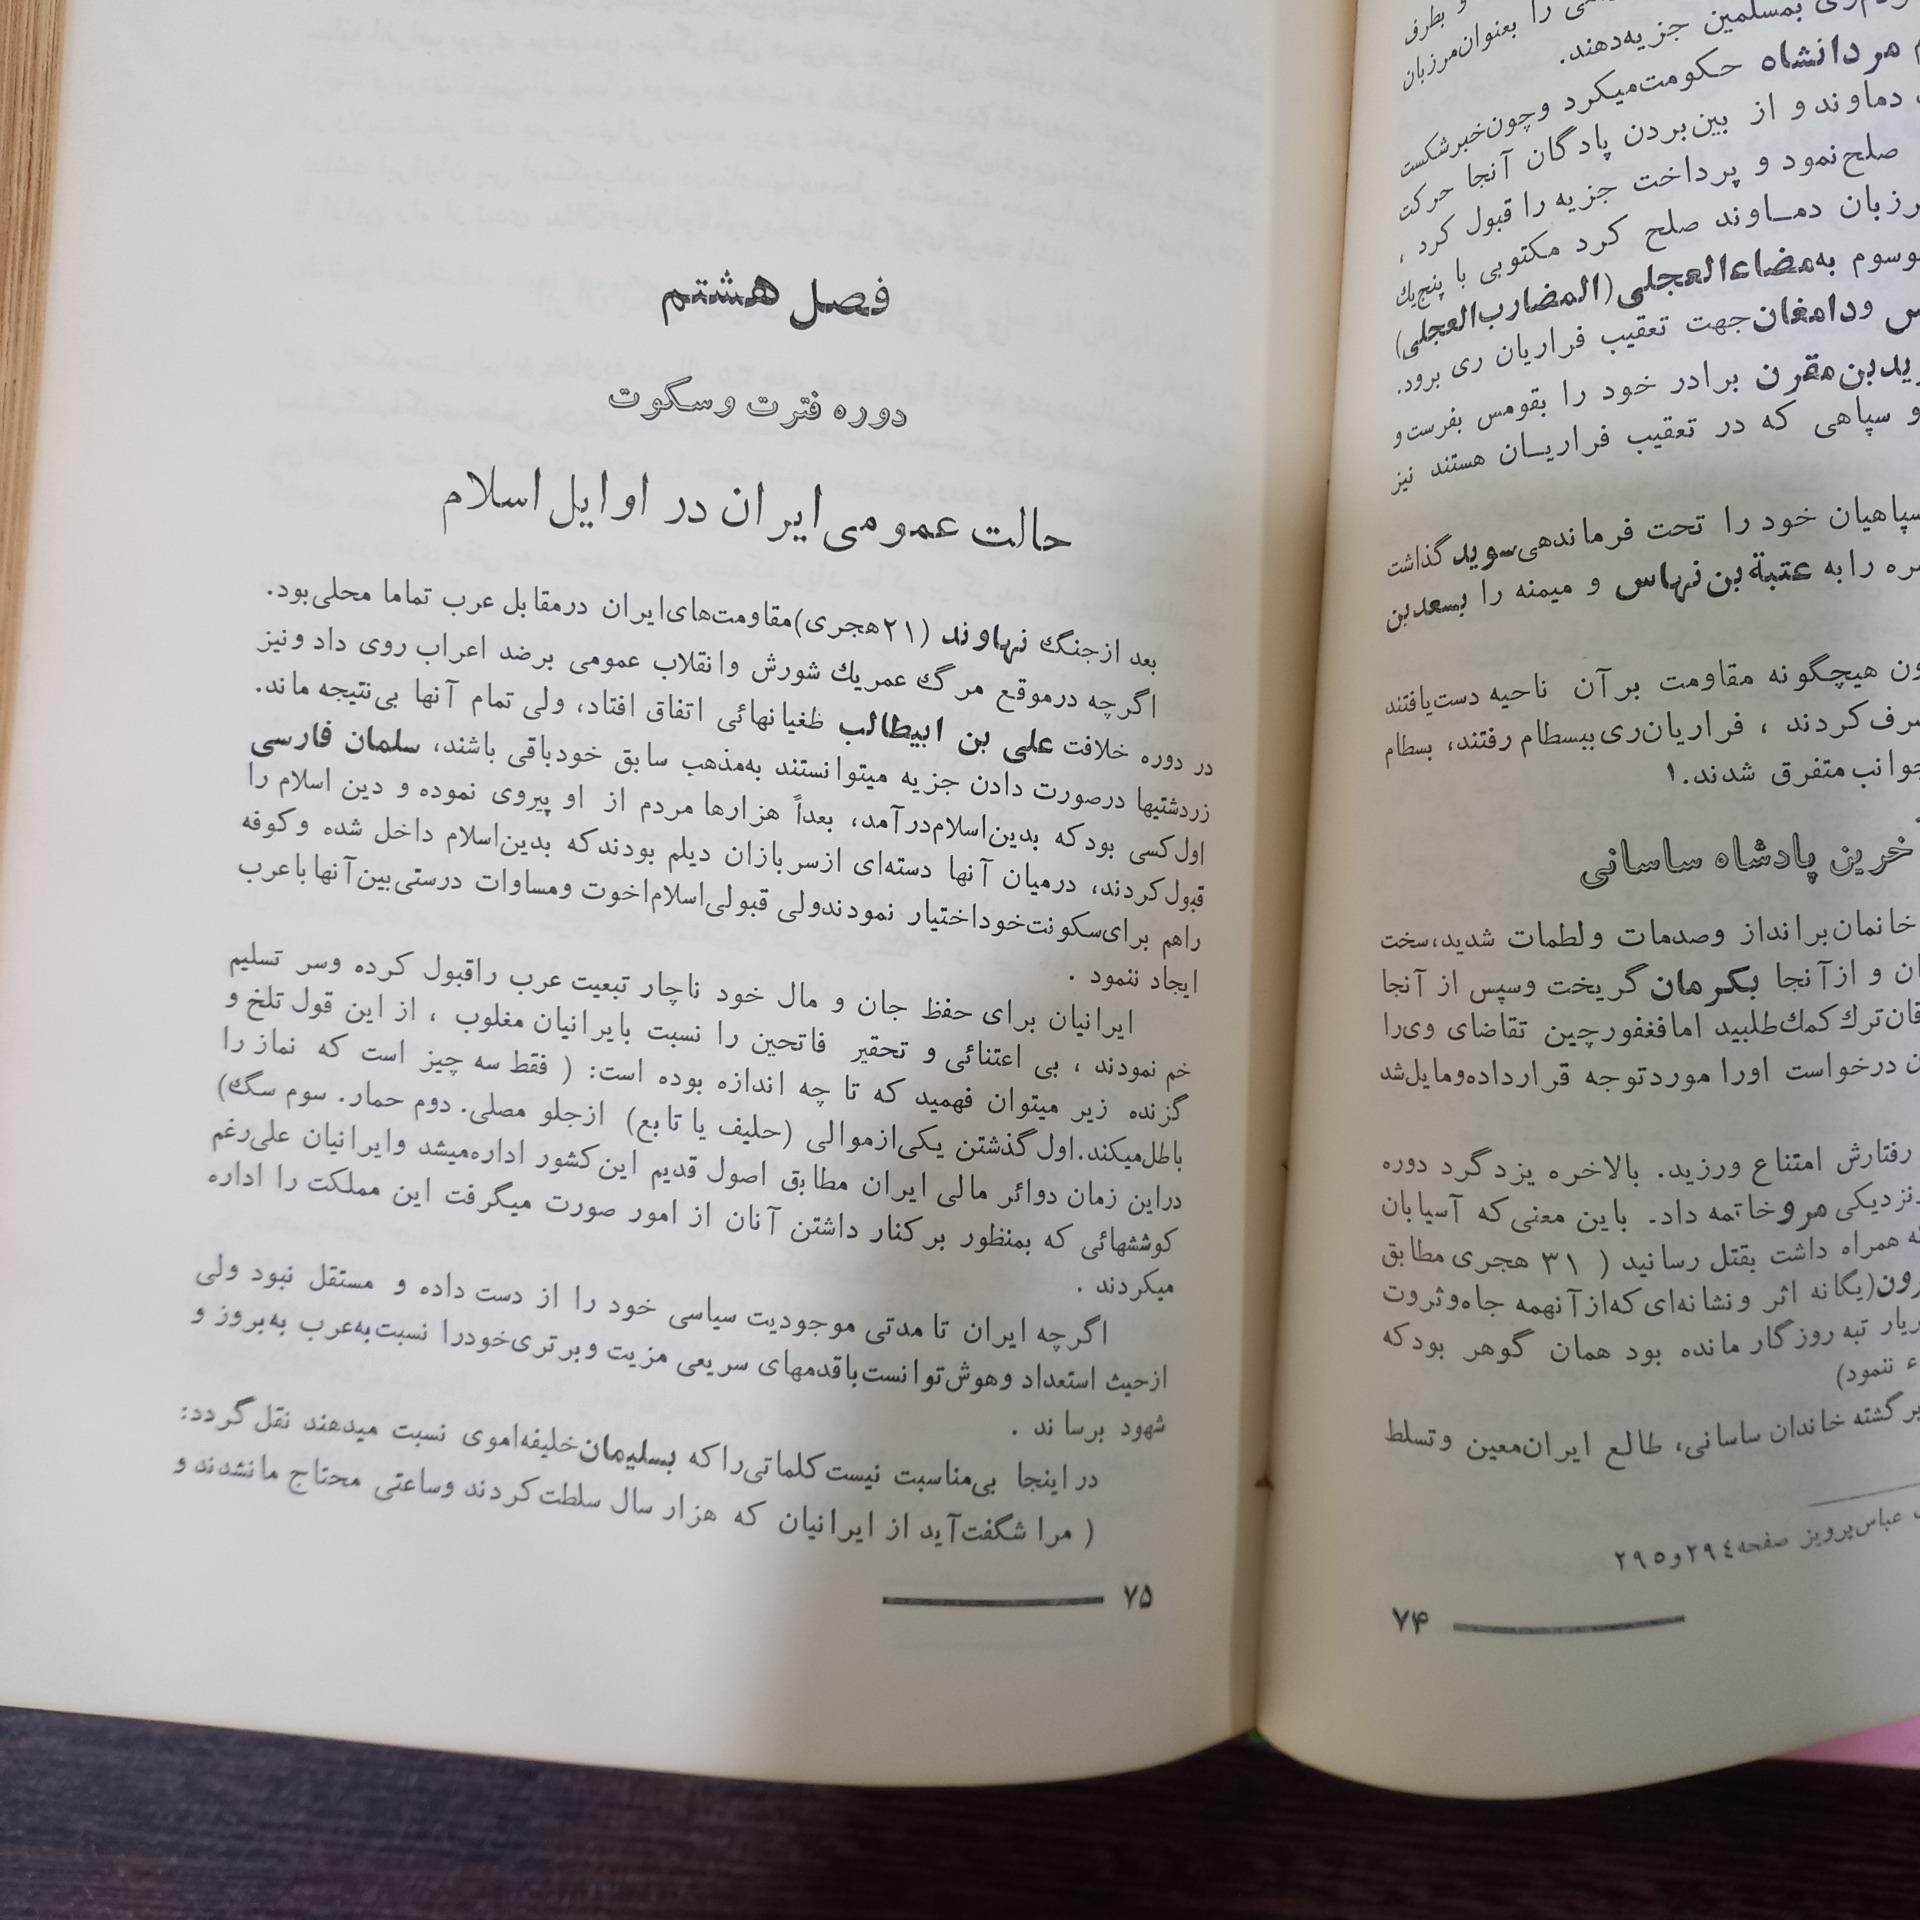 و بطرف
را بعنوان‌مرزبان
بمسلمین جزیه‌دهند.
مردانشاه حکومت‌میکرد وچون‌خبرشکست
دماوند و از بین‌بردن پادگان آنجا حرکت
صلح‌نمود و پرداخت جزیه را قبول کرد ،
دمـاوند صلح کرد مکتوبی با پنج‌یك
به‌مضاءالعجلی(المضارب‌العجلی)
ودامغان‌جهت تعقیب فراریان ری برود.
بن‌مقرن برادر خود را بقومس بفرست‌و
و سپاهی که در تعقیب فراریـان هستند نیز
سپاهیان خود را تحت فرماندهی‌سوید گذاشت
رابه عتبة‌بن‌نهاس و میمنه را بسعدبن
هیچگونه مقاومت برآن ناحیه دست‌یافتند
کردند ، فراریان‌ری ببسطام رفتند، بسطام
متفرق شدند.۱
پادشاه ساسانی
خانمان‌برانداز وصدمات ولطمات شدید،سخت
و ازآنجا بکرمان گریخت وسپس از آنجا
ترك‌كمك‌طلبید امافغفورچین تقاضای وی‌را
درخواست اورا موردتوجه قرارداده‌ومایل‌شد
رفتارش امتناع ورزید. بالاخره یزدگرد دوره
مروخاتمه داد. باین معنی‌که آسیابان
همراه داشت بقتل رسانید ( ۳۱ هجری مطابق
(یگانه اثر ونشانه‌ای‌که‌ازآنهمه جاه‌وثروت
تبه روزگار مانده بود همان گوهر بودکه
ننمود)
خاندان ساسانی، طالع ایران‌معین وتسلط
عباس‌پرویز صفحه۲۹٤و۲۹٥
۷۴
فصل هشتم
دوره فترت وسکوت
حالت عمومی‌ایران در اوایل‌اسلام
بعد ازجنگ نهاوند (۲۱هجری)مقاومت‌های‌ایران درمقابل عرب تماما محلی‌بود.
اگرچه درموقع مرگ عمریك شورش وانقلاب عمومی برضد اعراب روی داد ونیز
در دوره خلافت علی بن ابیطالب طغیانهائی اتفاق افتاد، ولی تمام آنها بی‌نتیجه ماند.
زردشتیها درصورت دادن جزیه میتوانستند به‌مذهب سابق خودباقی باشند، سلمان فارسی
اول‌کسی بودکه بدین‌اسلام‌درآمد، بعداً هزارها مردم از او پیروی نموده و دین اسلام را
قبول‌کردند، درمیان آنها دسته‌ای ازسربازان دیلم بودندکه بدین‌اسلام داخل شده وکوفه
راهم برای‌سکونت‌خوداختیار نمودندولی قبولی‌اسلام‌اخوت ومساوات درستی‌بین‌آنهاباعرب
ایجاد ننمود .
ایرانیان برای حفظ جان و مال خود ناچار تبعیت عرب راقبول کرده وسر تسلیم
خم نمودند ، بی اعتنائی و تحقیر فاتحین را نسبت بایرانیان مغلوب ، از این قول تلخ و
گزنده زیر میتوان فهمید که تا چه اندازه بوده است: ( فقط سه چیز است که نماز را
باطل‌میکند.اول‌گذشتن یکی‌ازموالی (حلیف یا تابع) ازجلو مصلی. دوم حمار. سوم سگ)
دراین زمان دوائر مالی ایران مطابق اصول قدیم این‌کشور اداره‌میشد وایرانیان علی‌رغم
کوششهائی که بمنظور برکنار داشتن آنان از امور صورت میگرفت این مملکت را اداره
میکردند .
اگرچه ایران تا مدتی موجودیت سیاسی خود را از دست داده و مستقل نبود ولی
ازحیث استعداد وهوش‌توانست‌باقدمهای سریعی مزیت وبرتری‌خودرا نسبت‌به‌عرب به‌بروز و
شهود برساند .
در اینجا بی‌مناسبت نیست‌کلماتی‌راکه بسلیمان‌خلیفه‌اموی نسبت میدهند نقل‌گردد:
( مرا شگفت‌آید از ایرانیان که هزار سال سلطت‌کردند وساعتی محتاج مانشدند و
۷۵